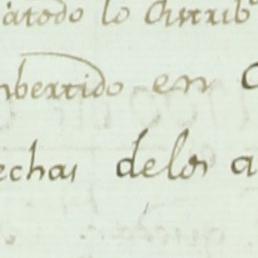 àtodo lo distrib
nbertido en
echas delos a